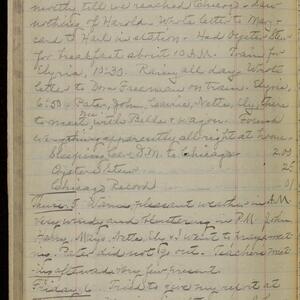 mostly till we reached Chicago. Saw
nothing of Harold. Wrote letter to May
card to Neil in station. Had Oyster Stew
for breakfast about 10 A.M. Train for
Elyria, 10-30. Rainy all day. Wrote
letter to Don Freeman on train. Elyria
6:50 - Pater, John, Leavie, Netta, Ely, there
to meet me with Bells & wagon. Found
everything apparently all right at home.
Sleeping Car D.M. to Chicago 2.00
Oyster Stew 25
Chicago Record 01
Thurs. 5. Warm pleasant weather in A.M.
Very windy and blustering in P.M. John
Harry, Mays, Netta, Ely & I went to prayer meet-
ing. Pater did not go out. Teachers meet-
ing afterward very few present
Friday 6. Tried to give my report at